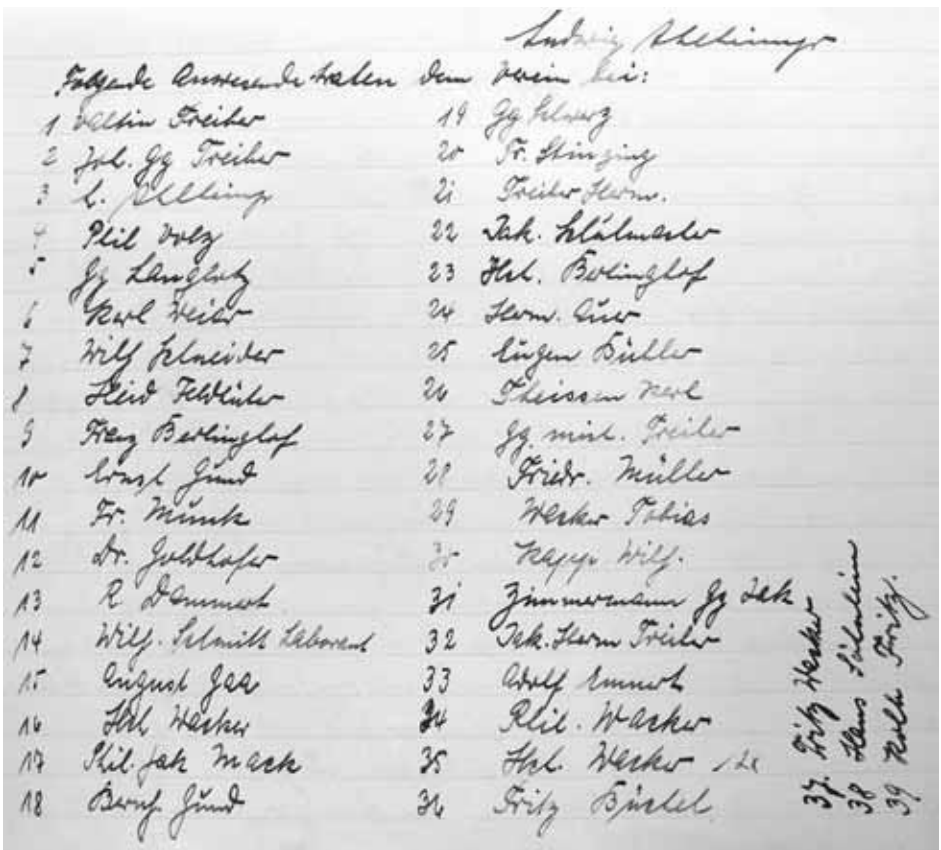 Ludwig
Folgende Anwesende traten dem Verein bei:
1 Valtin Treiber
2 Joh. Gg Treiber
3 L.
4 Phil Volz
5 Gg Langlotz
6 Karl Weier
7 Wilh Schneider
8 Heid
9 Franz Berlinghof
10 Ernst Gund
11 Fr. Munk
12 Dr. Goldhofer
13 R. Dammert
14 Wilh. Schmitt Laborant
15 August Gaa
16 Hch Wacker
17 Phil. Jak Mack
18 Bernh. Gund
19 Gg Schwarz
20 Fr.
21 Treiber Herm.
22 Jak. Schühmacher
23 Hch. Berlinghof
24 Herm. Auer
25 Eugen Bühler
26 Theissen Karl
27 Gg mich. Treiber
28 Friedr. Müller
29 Wacker Tobias
30 Kapp Wilh.
31 Zimmermann Gg Jak
32 Jak. Herm Treiber
33 Adolf Emmert
34 Phil. Wacker
35 Hch. Wacker
36 Fritz Büchel
37. Fritz Wacker
38 Hans
39 Kolb Fritz.